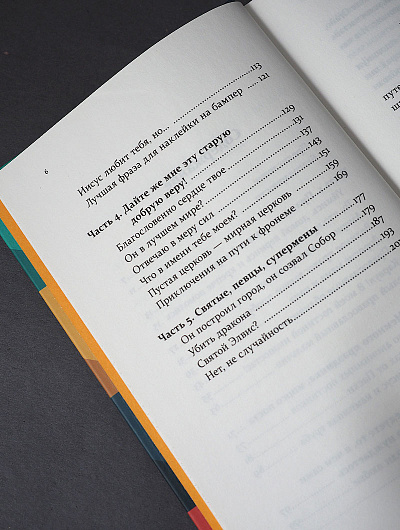 6
Иисус любит тебя, но... 113
Лучшая фраза для наклейки на бампер 121
Часть 4. Дайте же мне эту старую
добрую веру! 129
Благословенно сердце твое 131
Он в лучшем мире? 137
Отвечаю в меру сил 143
Что в имени тебе моем? 151
Пустая церковь — мирная церковь 159
Приключения на пути к фронеме 169
Часть 5. Святые, певцы, супермены 177
Он построил город, он созвал Собор 179
Убить дракона 187
Святой Элвис? 193
Нет, не случайность